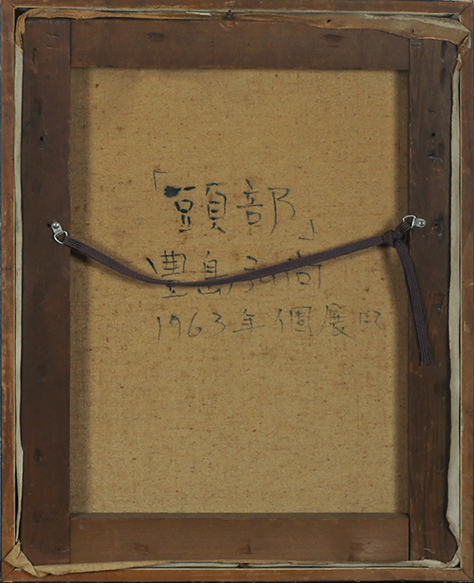 「頭部」
豊島弘尚
1963年個展出